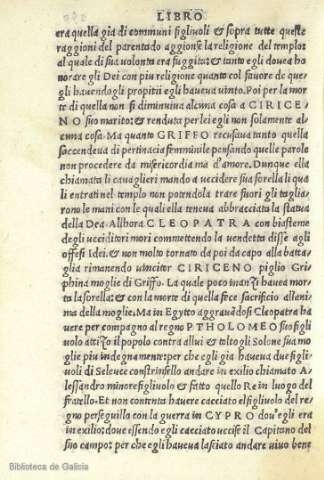 LIBRO
era quella gia di communi figliuoli & sopra tutte queste
raggioni del parentado aggionse la religione del templo:
al quale di sua volonta era fuggita: & tanto egli dovea ho
norare gli Dei con piu religione quanto col favore de que
gli havendogli propitii egli haveva vinto. Poi per la mor
te di quella non si diminuiva alcuna cosa a CIRICE
NO suo marito: & renduta per lei egli non solamente al
cuna cosa. Ma quanto GRIFFO recusava tanto quella
s'accendeva di pertinacia femminile pensando quelle parole
non procedere da misericordia ma d'amore. Dunque ella
chiamati li cavaglieri mando a uccidere sua sorella li qua
li entrati nel templo non potendola trare fuori gli taglia
rono le mani con le quali ella teneva abbracciata la statua
della Dea. Allhora CLEOPATRA con biasteme
degli ucciditori mori commettendo la vendetta disse agli
offesi Idei: & non molto tornato da poi da capo alla batta
glia rimanendo vincitor CIRICENO piglio Gri
phina moglie di Griffo. La quale poco inanzi haveva mor
ta la sorella: & con la morte di quella fece sacrificio all'ani
ma della moglie. Ma in Egytto aggravandosi Cleopatra ha
vere per compagno al regno PTHOLOMEO suo figli
volo attizo il popolo contra allui & toltogli Solone sua mo
glie piu indegnamente: per che egli gia haveva due figli
vuoli di Selence constrinsello andare in exilio chiamato A
lessandro minore figliuolo & fatto quello Re in luogo del
fratello. Et non contenta havere cacciato el figliuolo del re
gno perseguilla con la guerra in CYPRO dov'egli era
in exilio: dove essendo egli cacciato uccise il Capitano del
suo campo: per che egli haveva lasciato andare vivo bene
Biblioteca de Galicia